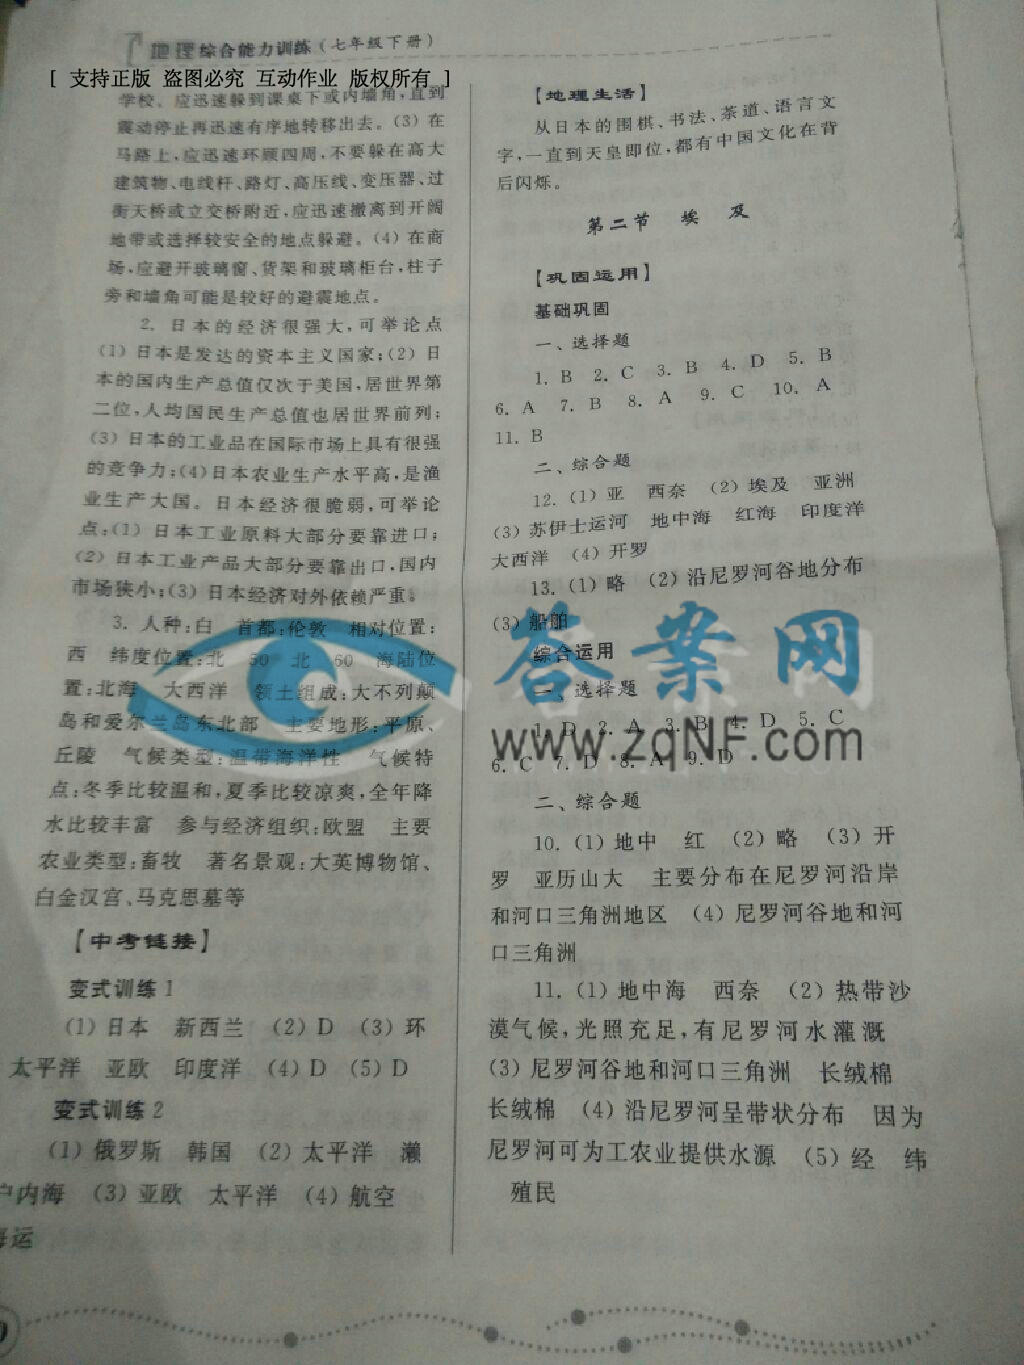 地理 综合能力训练(七年级下册)
[ 支持正版 盗图必究 互动作业 版权所有 ]
学校、应迅速躲到课桌下或内墙角,直到
震动停止再迅速有序地转移出去。(3)在
马路上,应迅速环顾四周,不要躲在高大
建筑物、电线杆、路灯、高压线、变压器、过
街天桥或立交桥附近,应迅速撤离到开阔
地带或选择较安全的地点躲避。(4)在商
场,应避开玻璃窗、货架和玻璃柜台,柱子
旁和墙角可能是较好的避震地点。
2. 日本的经济很强大,可举论点
(1)日本是发达的资本主义国家;(2)日
本的国内生产总值仅次于美国,居世界第
二位,人均国民生产总值也居世界前列;
(3)日本的工业品在国际市场上具有很强
的竞争力;(4)日本农业生产水平高,是渔
业生产大国。日本经济很脆弱,可举论
点:(1)日本工业原料大部分要靠进口;
(2)日本工业产品大部分要靠出口,国内
市场狭小;(3)日本经济对外依赖严重。
3. 人种:白 首都:伦敦 相对位置:
西 纬度位置:北 50 北 60 海陆位
置:北海 大西洋 领土组成:大不列颠
岛和爱尔兰岛东北部 主要地形:平原、
丘陵 气候类型:温带海洋性 气候特
点:冬季比较温和,夏季比较凉爽,全年降
水比较丰富 参与经济组织:欧盟 主要
农业类型:畜牧 著名景观:大英博物馆、
白金汉宫、马克思墓等
【中考链接】
变式训练1
(1)日本 新西兰 (2)D (3)环
太平洋 亚欧 印度洋 (4)D (5)D
变式训练2
(1)俄罗斯 韩国 (2)太平洋 濑
户内海 (3)亚欧 太平洋 (4)航空
海运
【地理生活】
从日本的围棋、书法、茶道、语言文
字,一直到天皇即位,都有中国文化在背
后闪烁。
第二节 埃 及
【巩固运用】
基础巩固
一、选择题
1. B 2. C 3. B 4. D 5. B
6. A 7. B 8. A 9. C 10. A
11. B
二、综合题
12. (1)亚 西奈 (2)埃及 亚洲
(3)苏伊士运河 地中海 红海 印度洋
大西洋 (4)开罗
13. (1)略 (2)沿尼罗河谷地分布
(3)船舶
综合运用
一、选择题
1. D 2. A 3. B 4. D 5. C
6. C 7. D 8. A 9. D
二、综合题
10. (1)地中 红 (2)略 (3)开
罗 亚历山大 主要分布在尼罗河沿岸
和河口三角洲地区 (4)尼罗河谷地和河
口三角洲
11. (1)地中海 西奈 (2)热带沙
漠气候,光照充足,有尼罗河水灌溉
(3)尼罗河谷地和河口三角洲 长绒棉
长绒棉 (4)沿尼罗河呈带状分布 因为
尼罗河可为工农业提供水源 (5)经 纬
殖民
答案网
www.zqNF.com